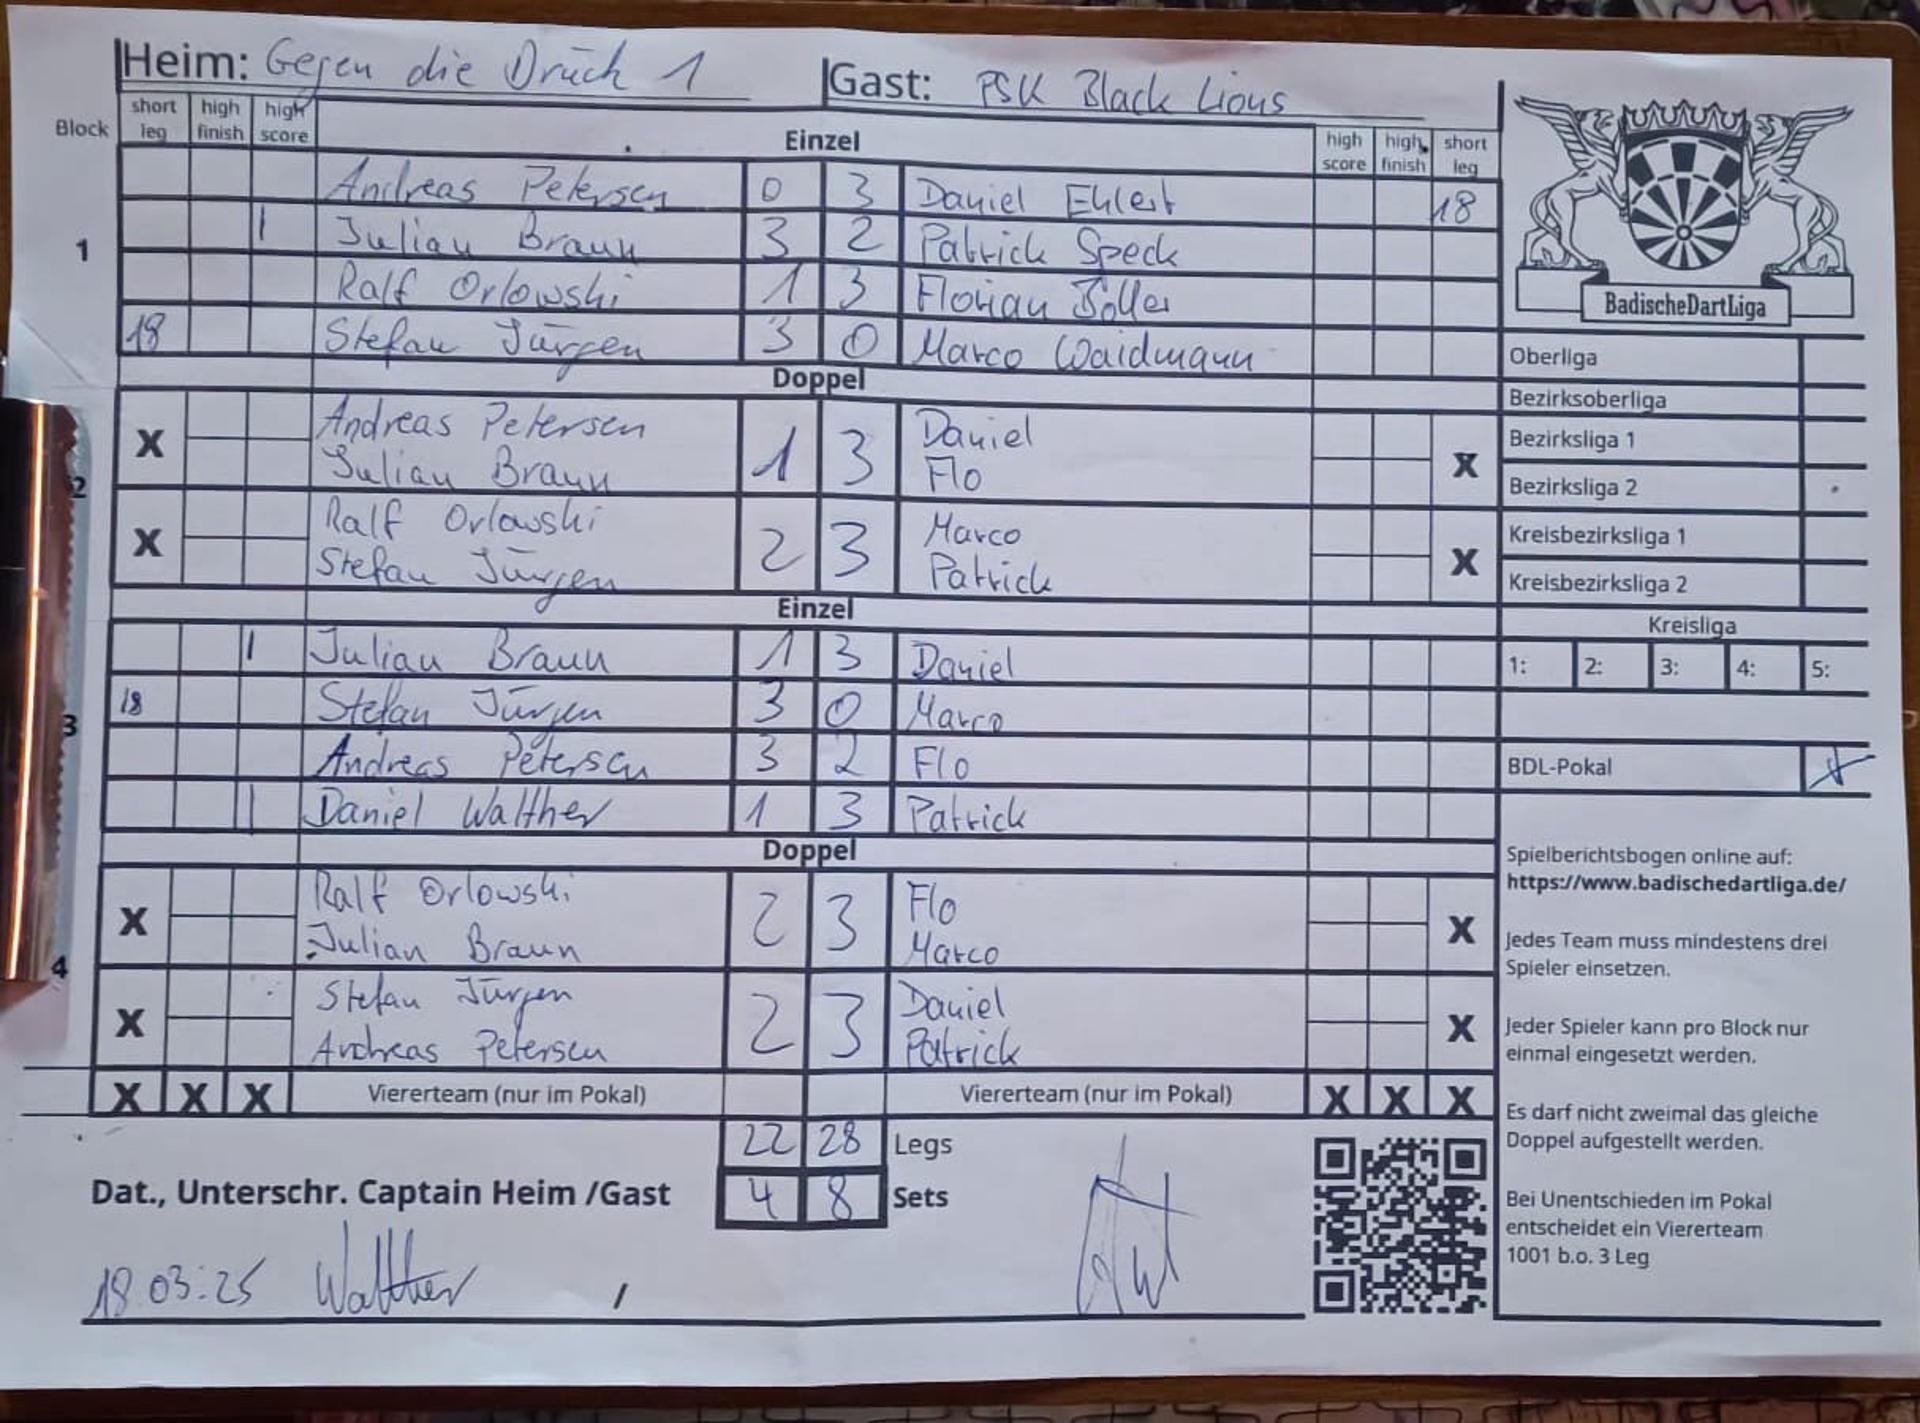 Heim: Gegen die Drück 1 Gast: PSK Black Lions
Block short leg high finish high score Einzel high score high finish short leg
Andreas Petersen 0 3 Daniel Ehlert 18
1 I Julian Braun 3 2 Patrick Speck
Ralf Orlowski 1 3 Florian Boller
18 Stefan Jürgen 3 0 Marco Waidmann
Doppel
X Andreas Petersen 1 3 Daniel X
Julian Braun Flo
2
X Ralf Orlowski 2 3 Marco X
Stefan Jürgen Patrick
Einzel
I Julian Braun 1 3 Daniel
18 Stefan Jürgen 3 0 Marco
3
Andreas Petersen 3 2 Flo
II Daniel Walther 1 3 Patrick
Doppel
X Ralf Orlowski 2 3 Flo X
Julian Braun Marco
4
X Stefan Jürgen 2 3 Daniel X
Andreas Petersen Patrick
X X X Viererteam (nur im Pokal) Viererteam (nur im Pokal) X X X
22 28 Legs
Dat., Unterschr. Captain Heim /Gast 4 8 Sets
18.03.25 Walther /
BadischeDartLiga
Oberliga
Bezirksoberliga
Bezirksliga 1
Bezirksliga 2
Kreisbezirksliga 1
Kreisbezirksliga 2
Kreisliga
1: 2: 3: 4: 5:
BDL-Pokal X
Spielberichtsbogen online auf:
https://www.badischedartliga.de/
Jedes Team muss mindestens drei
Spieler einsetzen.
Jeder Spieler kann pro Block nur
einmal eingesetzt werden.
Es darf nicht zweimal das gleiche
Doppel aufgestellt werden.
Bei Unentschieden im Pokal
entscheidet ein Viererteam
1001 b.o. 3 Leg